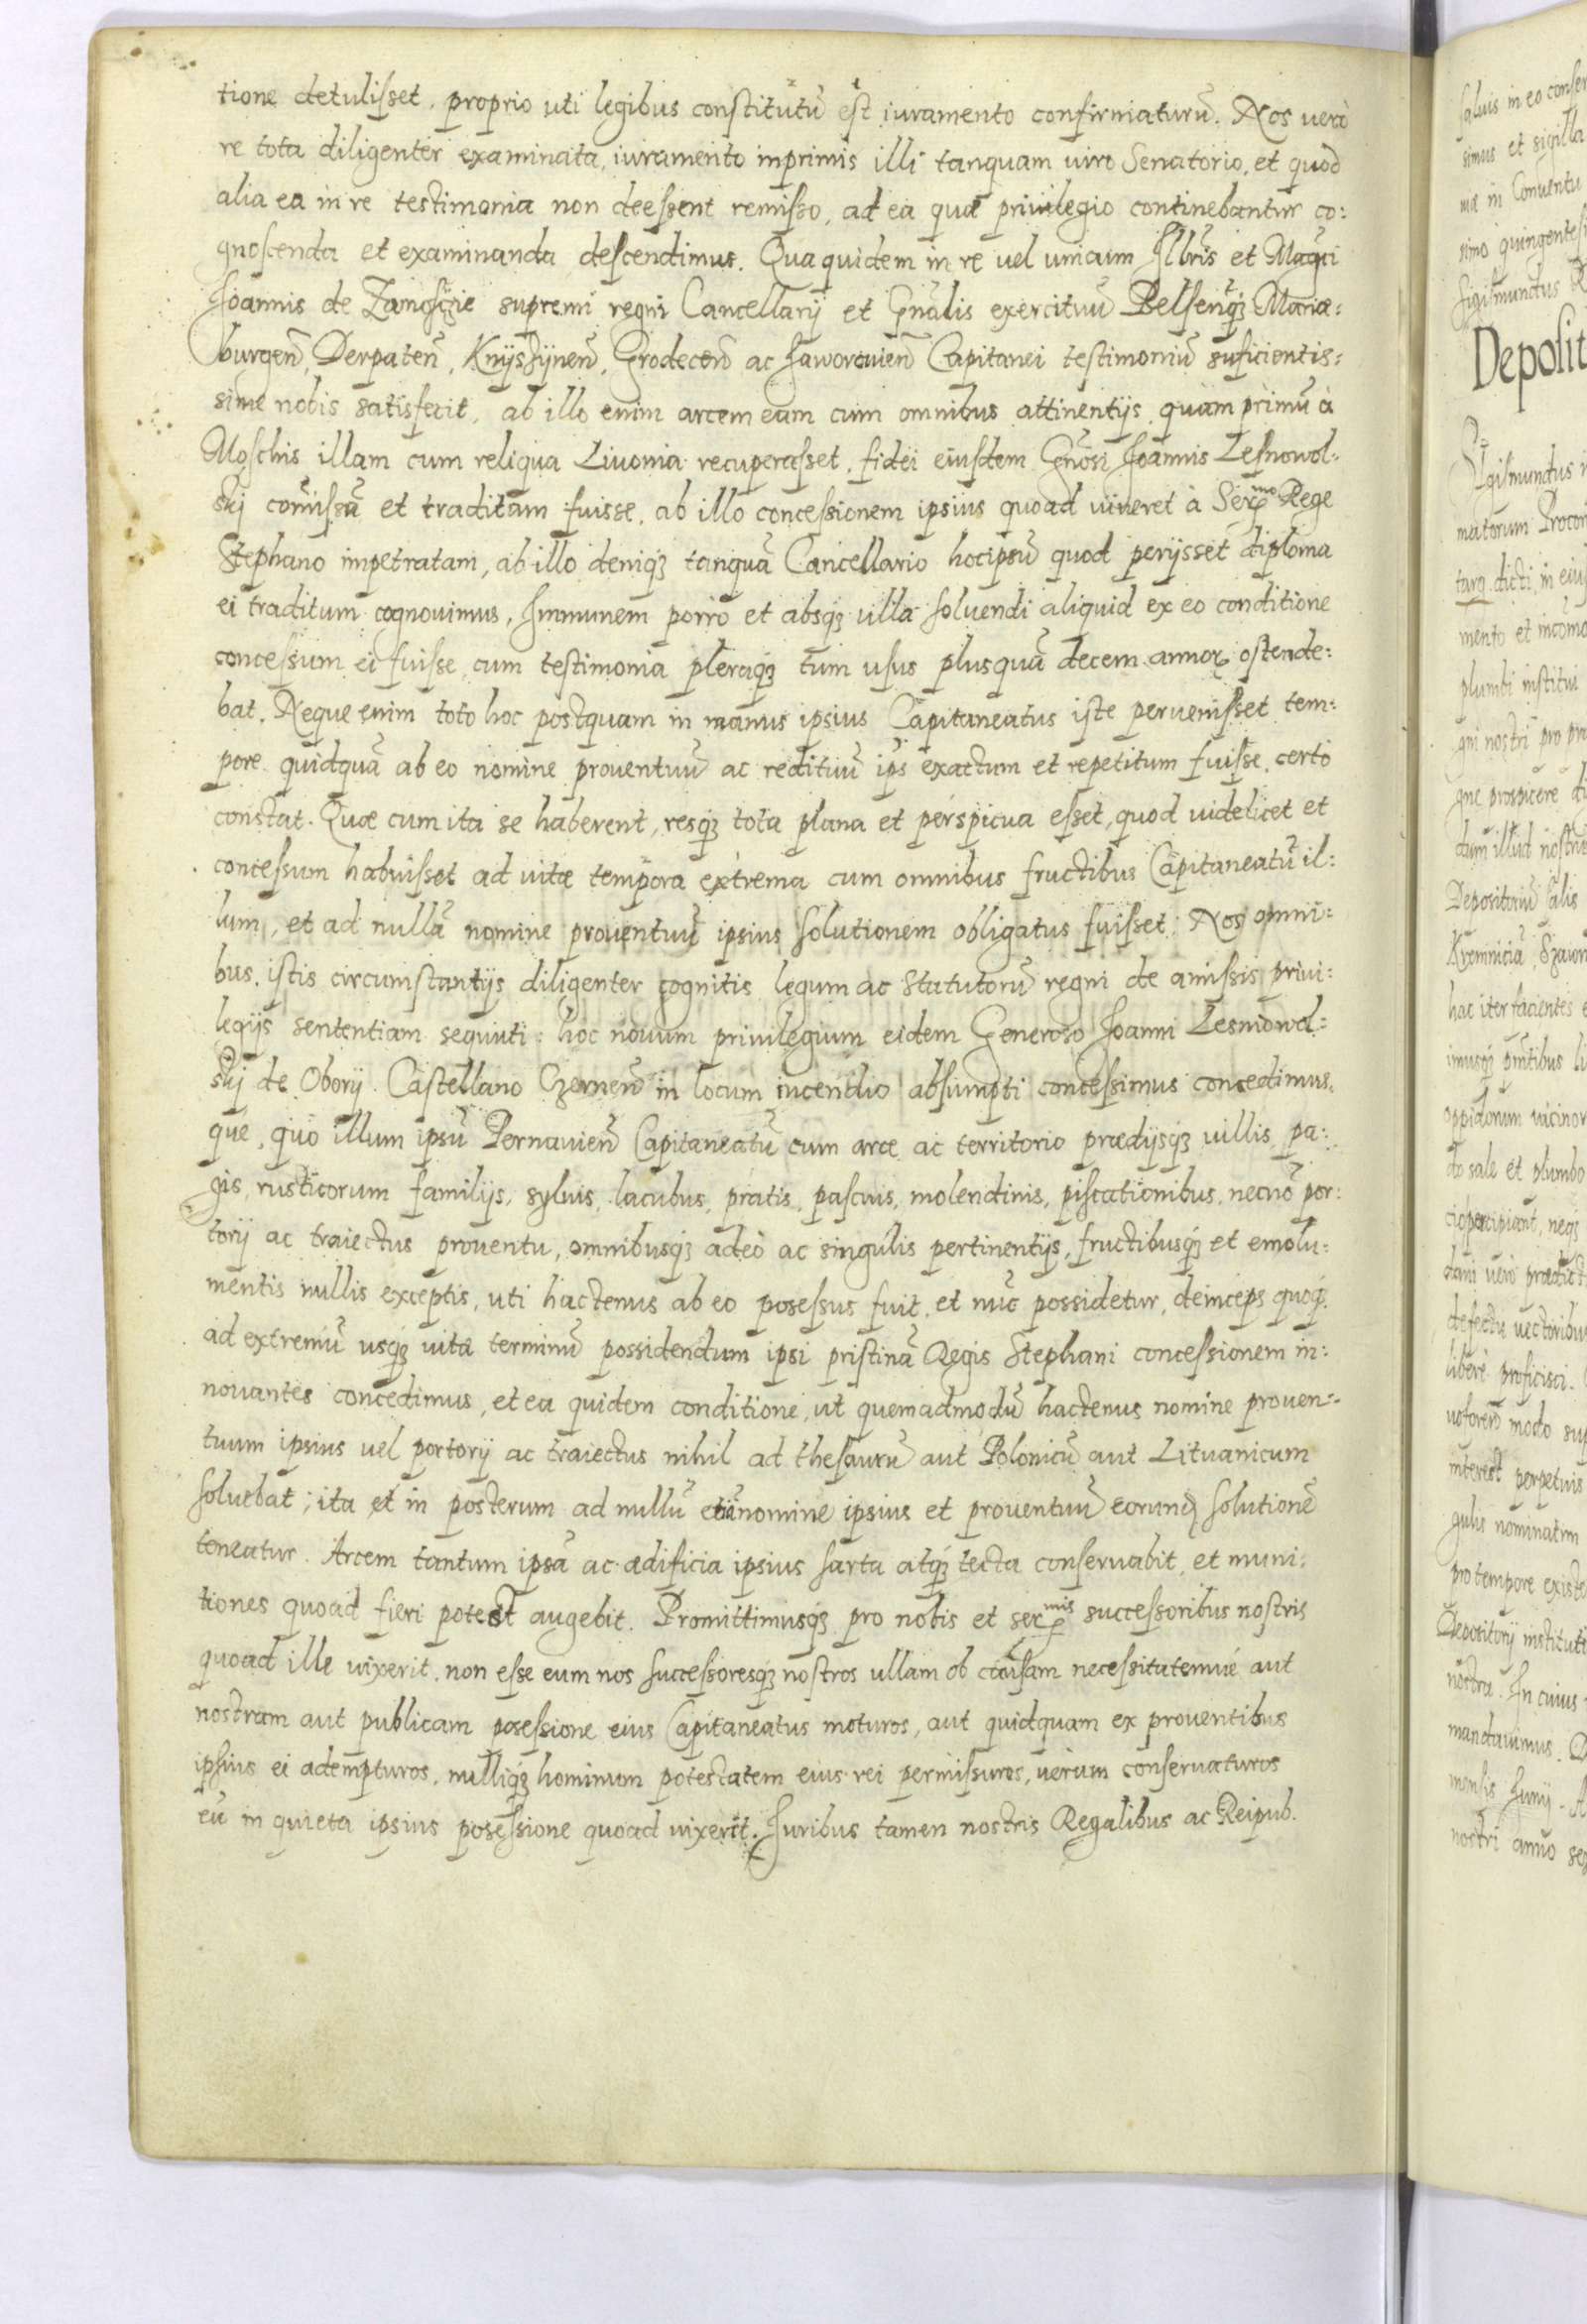 tione detulisset, proprio uti legibus constitutū est iuramento confirmaturū. Nos verò
re tota diligenter examinata, iuramento inprimis illi tanquam viro Senatorio, et quod
alia ea in re testimonia non deessent remisso, ad ea quæ privilegio continebantur co:
gnoscenda et examinanda descendimus. Qua quidem in re vel unicum Illris et Magci
Joannis de Zamoscie supremi regni Cancellarij et Gnālis exercituū Belsenq3 Mariæ:
burgeñ, Derpateñ, Knijszijneñ, Grodeceñ ac Jaworouieñ Capitanei testimoniū suficientis:
sime nobis satisfecit, ab illo enim arcem eam cum omnibus attinentijs, quàm primū à
Moschis illam cum reliqua Livonia recuperasset, fidei eiusdem Gnōsi Joannis Lesnowol:
skj comissā et traditam fuisse, ab illo concessionem ipsius quoad viveret à Sermo Rege
Stephano impetratam, ab illo deniq3 tanquā Cancellario hoc ipsū quod perijsset diploma
ei traditum cognovimus, Immunem porrò et absq3 ulla solvendi aliquid ex eo conditione
concessum ei fuisse, cum testimonia pleraq3 tum usus plusquā decem annoꝝ ostende:
bat. Neque enim toto hoc postquam in manus ipsius Capitaneatus iste pervenisset tem:
pore quidquā ab eo nomine proventuū ac redituū ips exactum et repetitum fuisse, certo
constat. Quæ cum ita se haberent, resq3 tota plana et perspicua esset, quod videlicet et
concessum habuisset ad vitæ tempora extrema cum omnibus fructibus Capitaneatū il:
lum, et ad nullā nomine proventuū ipsius solutionem obligatus fuisset: Nos omni:
bus istis circumstantijs diligenter cognitis legum ac Statutorū regni de amissis privi:
legijs sententiam sequuti: hoc novum privilegium eidem Generoso Joanni Lesniowol:
skj de Oborij Castellano Czerneñ in locum incendio absumpti concessimus concedimus
que, quo illum ipsū Pernavieñ Capitaneatū cum arce ac territorio prædijsq3 villis, pa:
gis, rusticorum familijs, sylvis, lacubus, pratis, pascuis, molendinis, piscationibus, necnō por:
torij ac traiectus proventu, omnibusq3 adeò ac singulis pertinentijs, fructibusq3 et emolu:
mentis nullis exceptis, uti hactenus ab eo posessus fuit, et nūc possidetur, deinceps quoq3
ad extremū usq3 vitæ terminū possidendum ipsi pristinā Regis Stephani concessionem in:
novantes concedimus, et ea quidem conditione, ut quemadmodū hactenus nomine proven:
tuum ipsius vel portorij ac traiectus nihil ad thesaurū aut Polonicū aut Lituanicum
solvebat; ita et in posterum ad nullū etiā nomine ipsius et proventuū eorunđ solutionē
teneatur. Arcem tantum ipsā ac ædificia ipsius sarta atq3 tecta conservabit, et muni:
tiones quoad fieri potest augebit. Promittimusq3 pro nobis et sermis successoribus nostris
quoad ille vixerit, non esse eum nos successoresq3 nostros ullam ob causam necessitatemvé aut
nostram aut publicam posessione eius Capitaneatus moturos, aut quidquam ex proventibus
ipsius ei adempturos, nulliq3 hominum potestatem eius rei permissuros, verùm conservaturos
eū in quieta ipsius posessione quoad vixerit. Juribus tamen nostris Regalibus ac Reipub.
salvis in eo conser
simus et sigilla
næ in Conventu
simo quingentesi
Sigismundus R
Deposit
Sigismundus
matorum Procon
targ dicti, in eiu
mento et incomo
plumbi institui
gni nostri pro pro
gne prospicere di
dum illud nostr
Depositoriū salis
Kremnicia, Szawn
hac iter facientes e
imusq3 pntibus li
oppidorum vicinor
do sale et plumbo
cio percipiant, neq3
dani verò prædict
defectu vectoribu
liberè proficisci.
modo su
interest perpetuis
gulis nominatim
pro tempore existe
Depositorij instituti
nostra. In cuius
mandavimus.
mensis Junij. A
nostri anno se